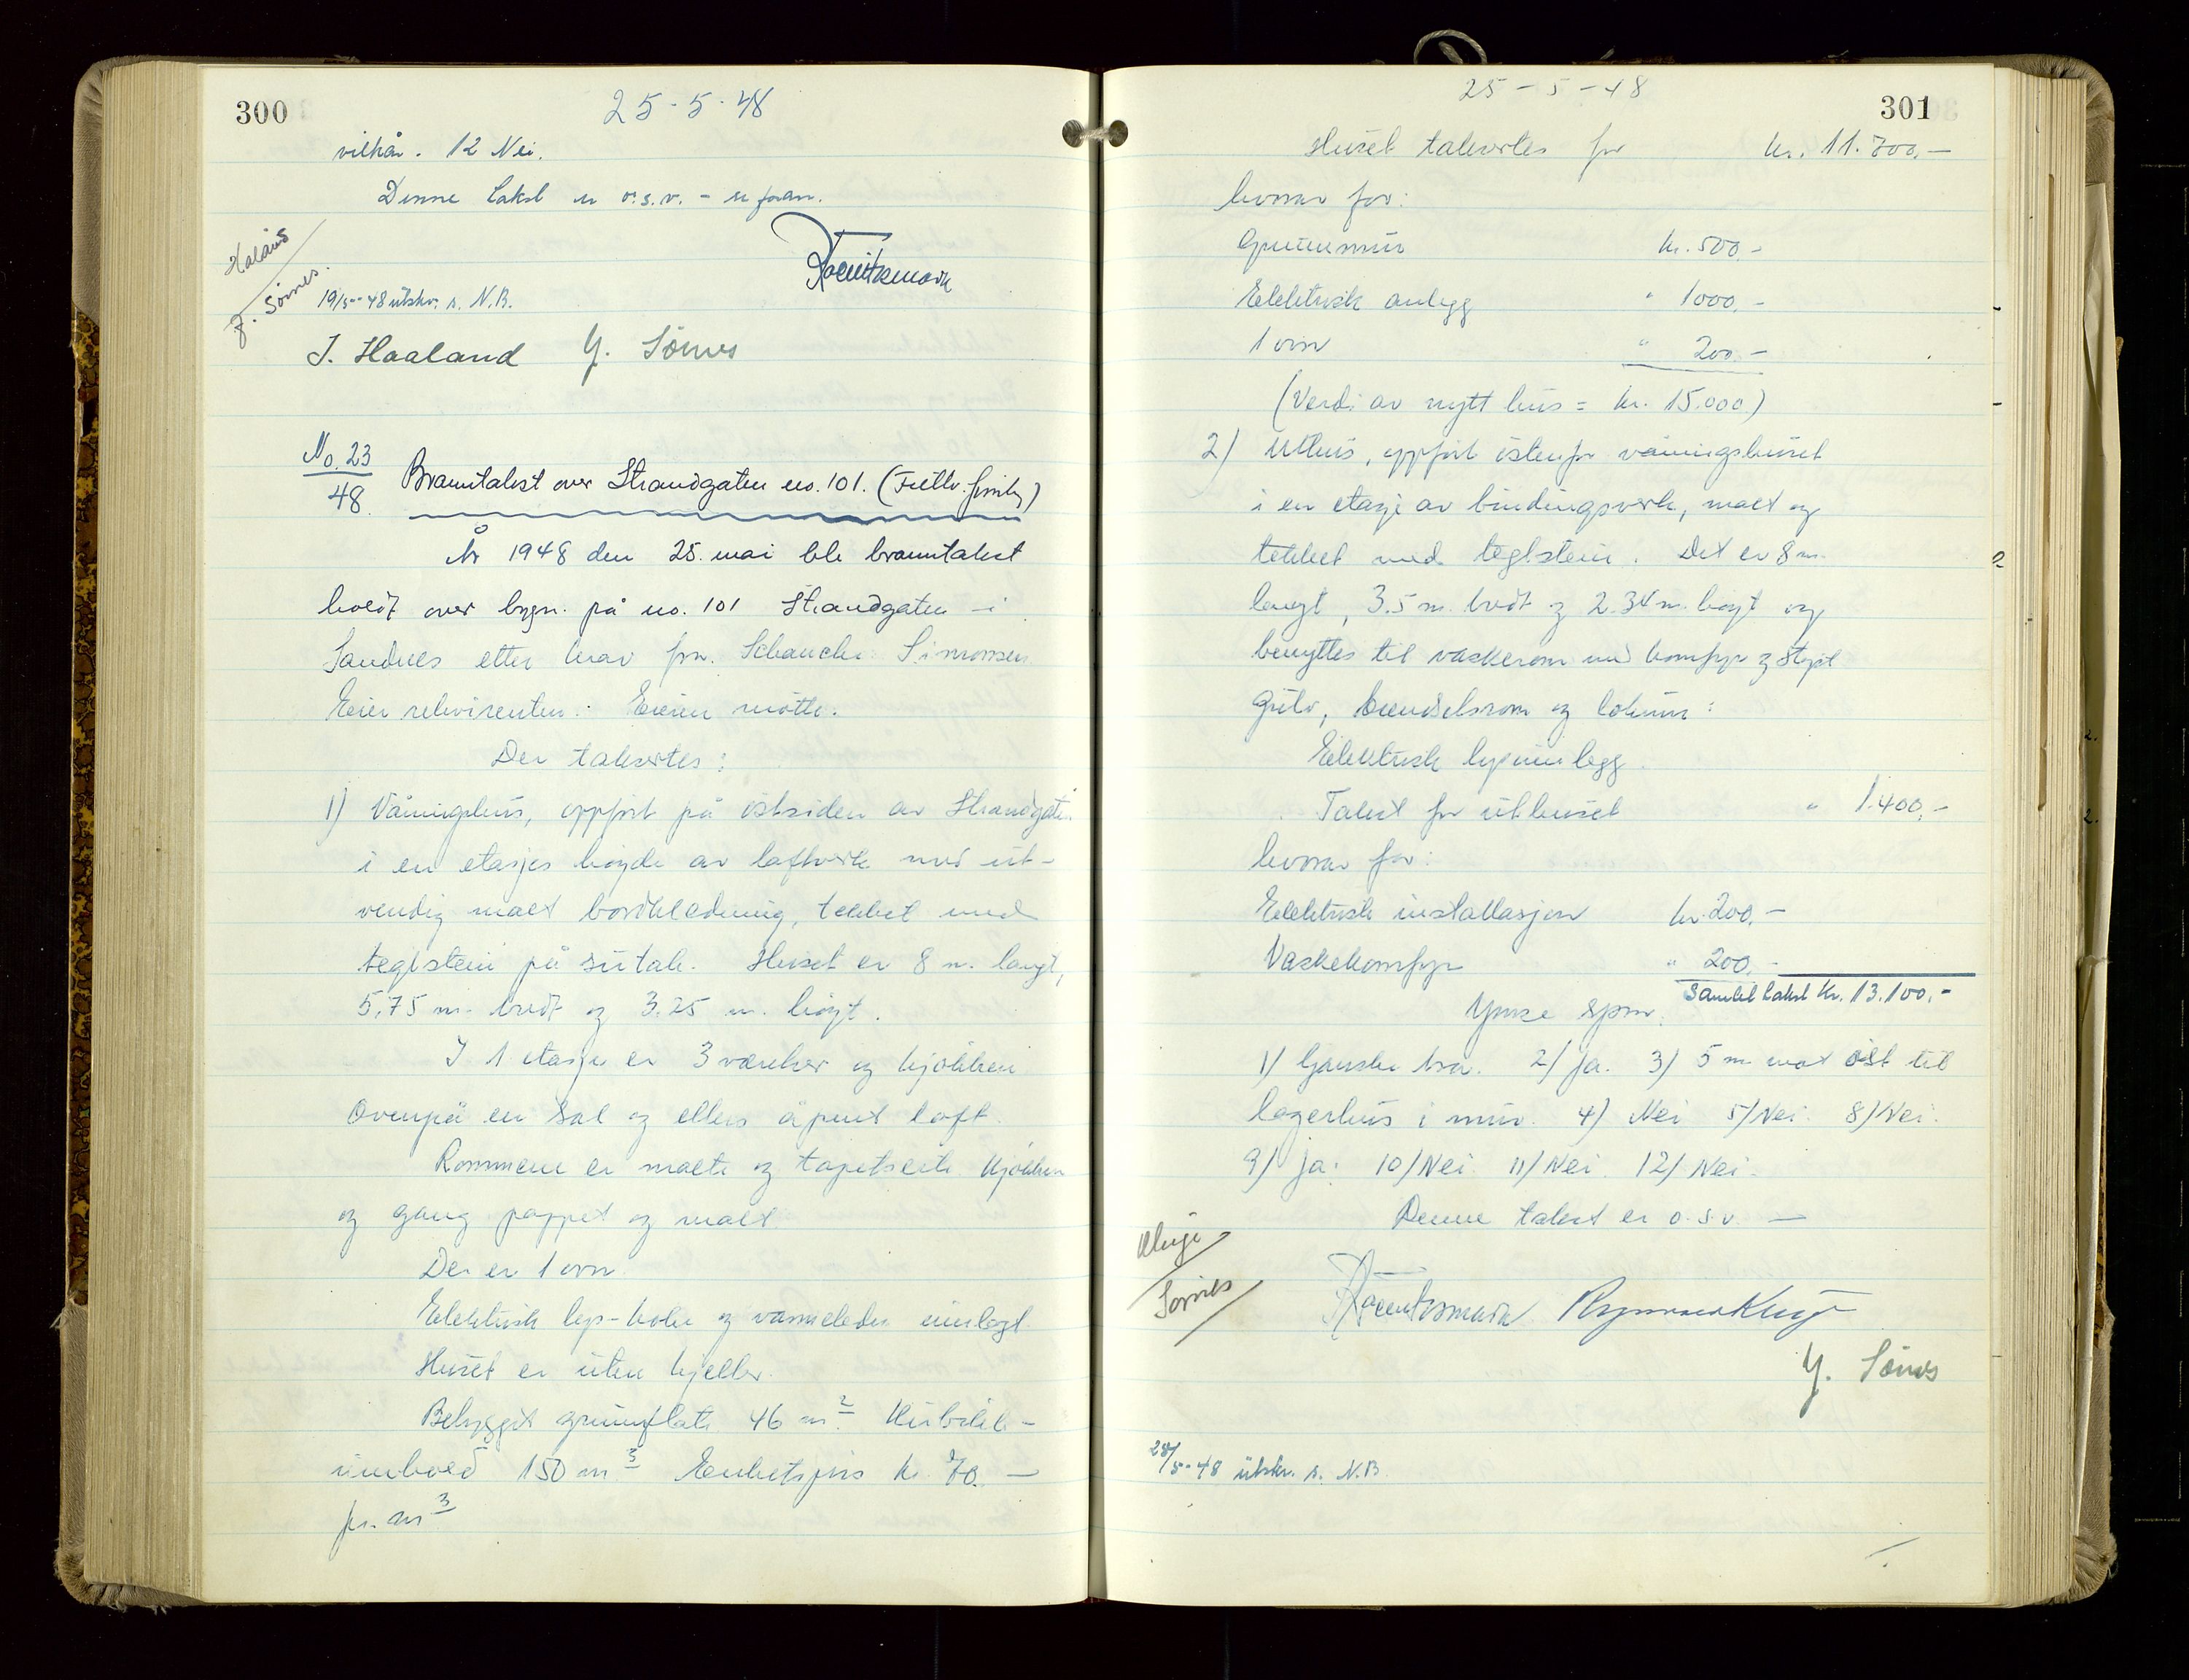 300
25-5-48
vilkår. 12 Nei.
Denne takst er o.s.v. - se foran.
Haland
J. Sømes.
19/5-48 utskr. s. N.B.
J. Haaland Y. Sömes
No. 23
48.
Branntakst over Strandgaten no. 101.
År 1948 den 25. mai ble branntakst
holdt over bygn. på no. 101 Strandgaten i
Sandnes etter krav fra Schanche Simonsen
Eier rekvirenten. Eieren møtte.
Der takseres:
1) Våningshus, oppført på østsiden av Strandgaten
i en etasjes høyde av laftverk med ut-
vendig malt bordkledning, tekket med
teglstein på sutak. Huset er 8 m. langt,
5,75 m. bredt og 3.25 m. høyt.
I 1 etasje er 3 værelser og kjøkken
Ovenpå en sal og ellers åpent loft.
Rommene er malte og tapetserte. Kjøkken
og gang pappet og malt.
Der er 1 ovn
Elektrisk lys- koke og varmeleder innlagt.
Huset er uten kjeller.
Bebygget grunnflate 46 m². Kubikk-
innhold 150 m³ Enhetspris kr. 70.-
pr. m³
25-5-48
301
Huset takseres for kr. 11.700,-
hvorav for:
Grunnmur kr. 500.-
Elektrisk anlegg " 1000.-
1 ovn " 200.-
(Verdi av nytt hus = kr. 15.000)
2) Uthus, oppført østenfor våningshuset
i en etasje av bindingsverk, malt og
tekket med teglstein. Det er 8 m.
langt, 3.5 m. bredt og 2.34 m. høyt og
benyttes til vaskerom med komfyr og støpt
gulv, brendselsrom og lokum:
Elektrisk lys innlegg.
Takst for uthuset " 1.400,-
hvorav for:
Elektrisk installasjon kr. 200.-
Vaskekomfyr " 200.-
Samlet takst kr. 13.100.-
Ymse spm.
1) Ganske bra. 2) Ja. 3) 5 m mot øst til
lagerhus i mur. 4) Nei 5) Nei. 8) Nei.
9) Ja: 10) Nei. 11) Nei. 12) Nei.
Denne takst er o.s.v. —
Kluge
Sømes
Y. Sömes
28/5-48 utskr. s. N.B.